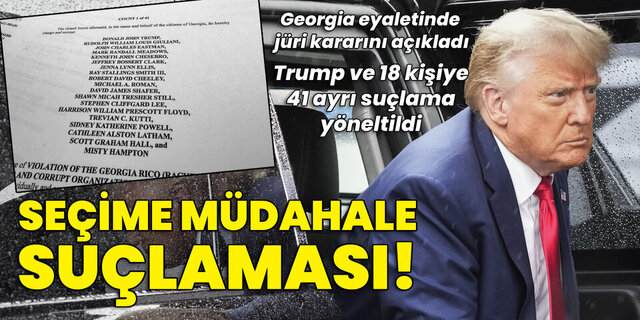 COUNT 1 of 41
The Grand Jurors aforesaid, in the name and behalf of the citizens of Georgia, do hereby
charge and accuse:
DONALD JOHN TRUMP,
RUDOLPH WILLIAM LOUIS GIULIANI,
JOHN CHARLES EASTMAN,
MARK RANDALL MEADOWS,
KENNETH JOHN CHESEBRO,
JEFFREY BOSSERT CLARK,
JENNA LYNN ELLIS,
RAY STALLINGS SMITH III,
ROBERT DAVID CHEELEY,
MICHAEL A. ROMAN,
DAVID JAMES SHAFER,
SHAWN MICAH TRESHER STILL,
STEPHEN CLIFFGARD LEE,
HARRISON WILLIAM PRESCOTT FLOYD,
TREVIAN C. KUTTI,
SIDNEY KATHERINE POWELL,
CATHLEEN ALSTON LATHAM,
SCOTT GRAHAM HALL, and
MISTY HAMPTON
of VIOLATION OF THE GEORGIA RICO
AND CORRUPT
Georgia eyaletinde
jüri kararını açıkladı
Trump ve 18 kişiye
41 ayrı suçlama
yöneltildi
SEÇİME MÜDAHALE
SUÇLAMASI!